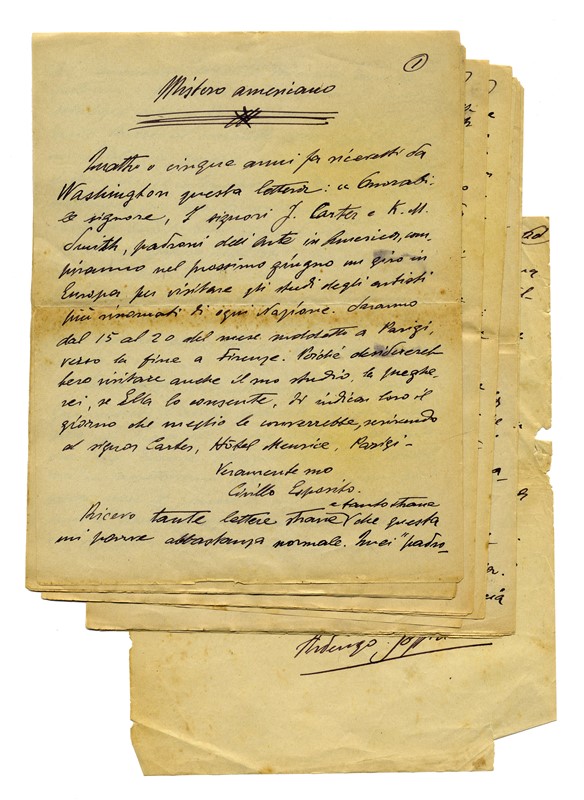 1
Mistero americano
Quattro o cinque anni fa ricevetti da
Washington questa lettera: « Onorabi-
le signore, I signori J. Carter e K. M.
Smith, padroni dell'Arte in America, com-
piranno nel prossimo giugno un giro in
Europa per visitare gli studi degli artisti
più rinomati di ogni Nazione. Saranno
dal 15 al 20 del mese suddetto a Parigi,
verso la fine a Firenze. Poiché desiderereb-
bero visitare anche il suo studio, la preghe-
rei, se Ella lo consente, di indicar loro il
giorno che meglio le converrebbe, scrivendo
al signor Carter, Hôtel Meurice, Parigi -
Veramente suo
Cirillo Esposito.
Ricevo tante lettere strane e tanto strane che questa
mi parve abbastanza normale. Quei "padro-
Ardengo Soffici